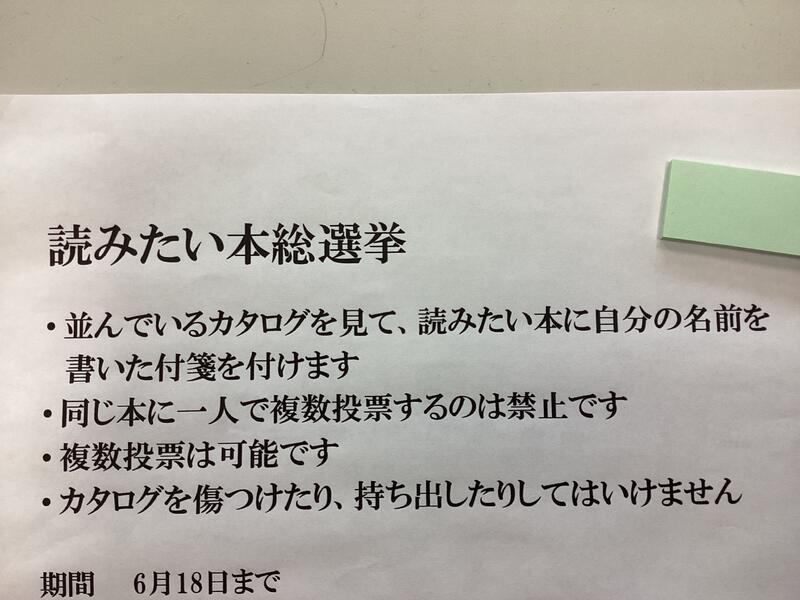 読みたい本総選挙
・並んでいるカタログを見て、読みたい本に自分の名前を
書いた付箋を付けます
・同じ本に一人で複数投票するのは禁止です
・複数投票は可能です
・カタログを傷つけたり、持ち出したりしてはいけません
期間　6月18日まで